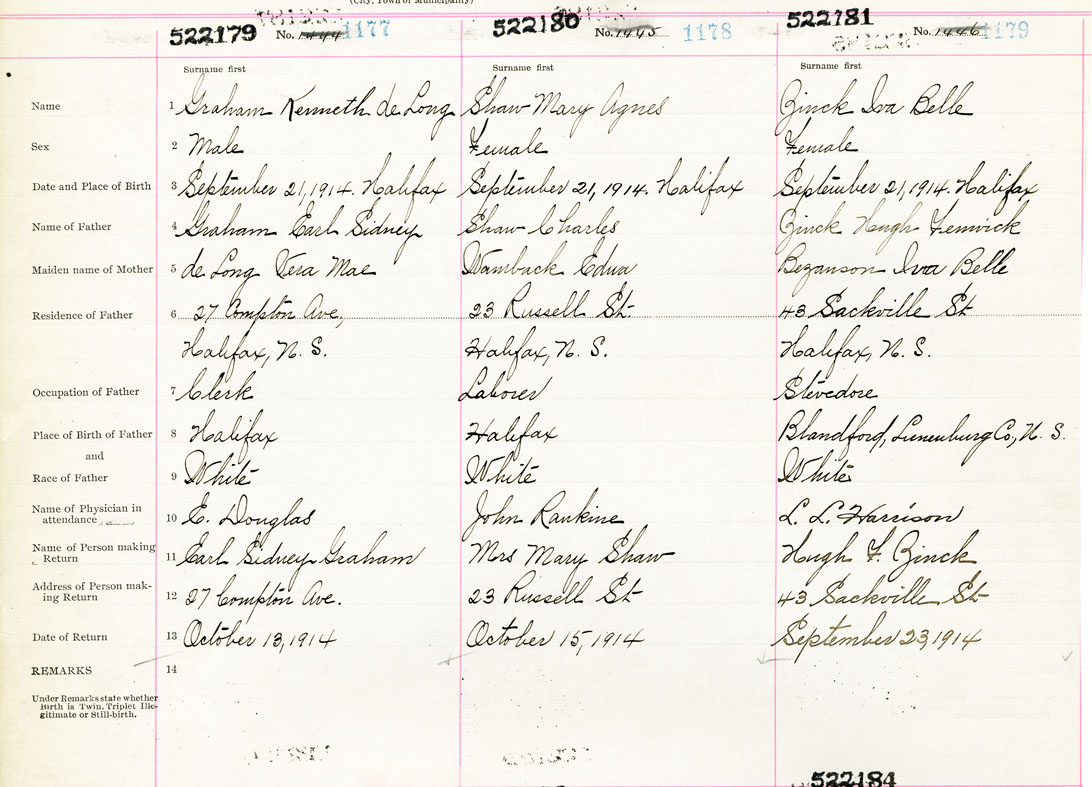 (City, Town of Municipality)
522179 No. 1444 1177 522180 No. 1445 1178 522181 No. 1446 1179
Surname first Surname first Surname first
Name 1 Graham Kenneth de Long Shaw Mary Agnes Zinck Iva Belle
Sex 2 Male Female Female
Date and Place of Birth 3 September 21, 1914. Halifax September 21, 1914. Halifax September 21, 1914. Halifax
Name of Father 4 Graham Earl Sidney Shaw Charles Zinck Hugh Fenwick
Maiden name of Mother 5 de Long Vera Mae Wamback Edna Bezanson Iva Belle
Residence of Father 6 27 Compton Ave., 23 Russell St. 43 Sackville St
Halifax, N. S. Halifax, N. S. Halifax, N. S.
Occupation of Father 7 Clerk Laborer Stevedore
Place of Birth of Father 8 Halifax Halifax Blandford, Lunenburg Co., N. S.
and
Race of Father 9 White White White
Name of Physician in
attendance 10 E. Douglas John Rankine L. L. Harrison
Name of Person making
Return 11 Earl Sidney Graham Mrs Mary Shaw Hugh F. Zinck
Address of Person mak-
ing Return 12 27 Compton Ave. 23 Russell St 43 Sackville St
Date of Return 13 October 13, 1914 October 15, 1914 September 23, 1914
REMARKS 14
Under Remarks state whether
Birth is Twin, Triplet Ille-
gitimate or Still-birth.
522184